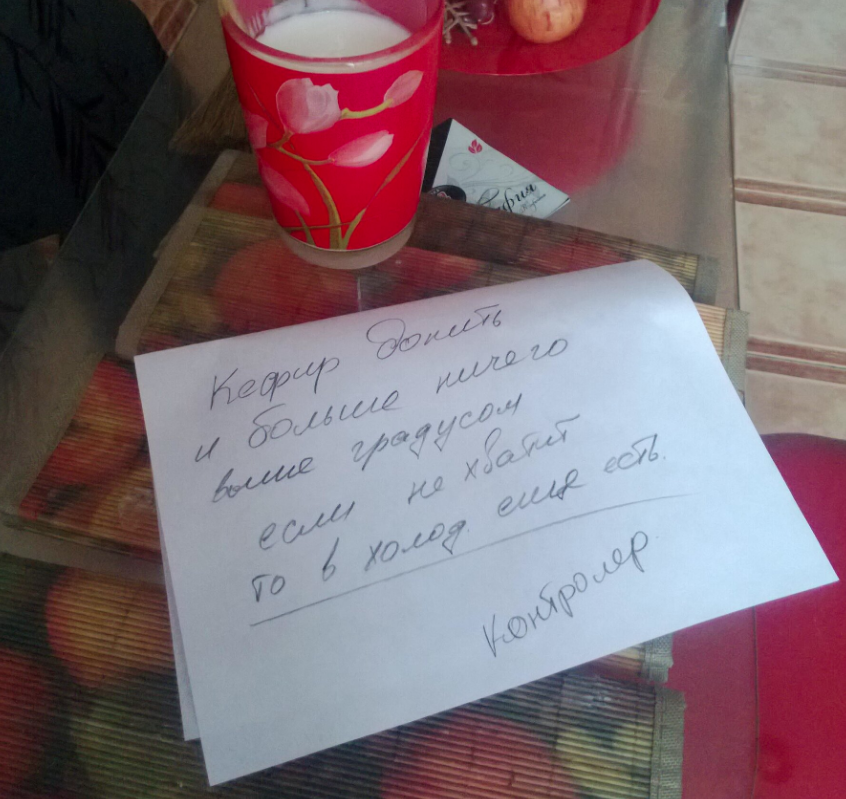 Кефир допить
и больше ничего
выше градусом
если не хватит
то в холод. еще есть.
Контролер